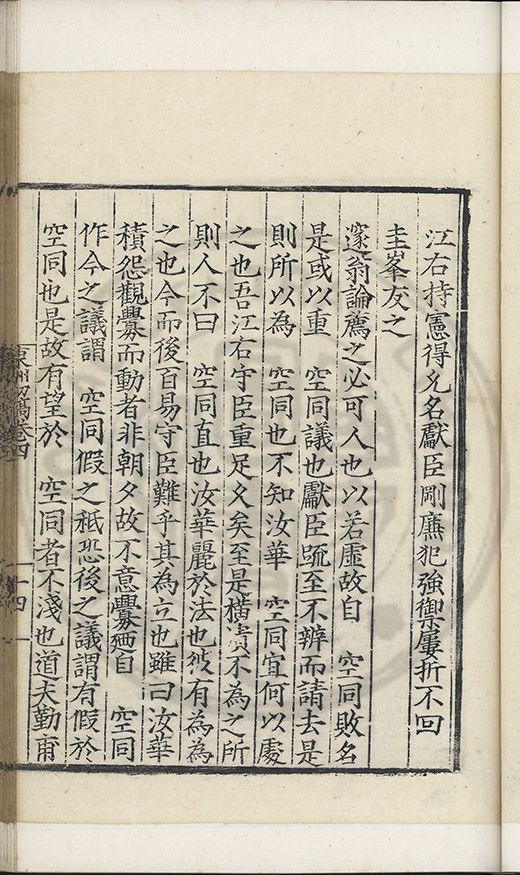 江右持憲得允名獻臣剛廉犯強禦屢折不回
圭峯友之
邃翁論薦之必可人也以若虛故自　空同敗名
是或以重　空同議也獻臣疏至不辨而請去是
則所以為　空同也不知汝華　空同宜何以處
之也吾江右守臣重足久矣至是橫責不為之所
則人不曰　空同直也汝華麗於法也然有為為
之也今而後百易守臣難乎其為立也雖曰汝華
積怨觀釁而動者非朝夕故不意釁廼自　空同
作今之議謂　空同假之秪恐後之議謂有假於
空同也是故有望於　空同者不淺也道夫勤甫
東洲初稿卷四
十四